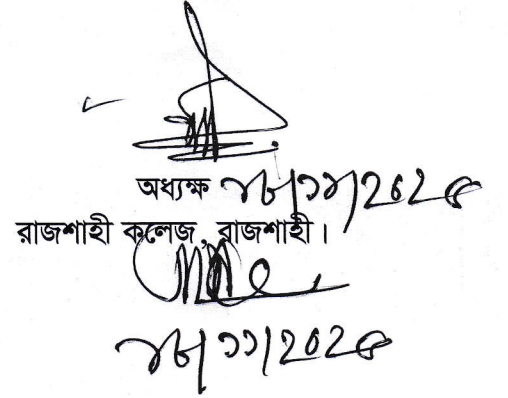 অধ্যক্ষ ১৮/১১/২০২৫
রাজশাহী কলেজ, রাজশাহী।
১৮/১১/২০২৫